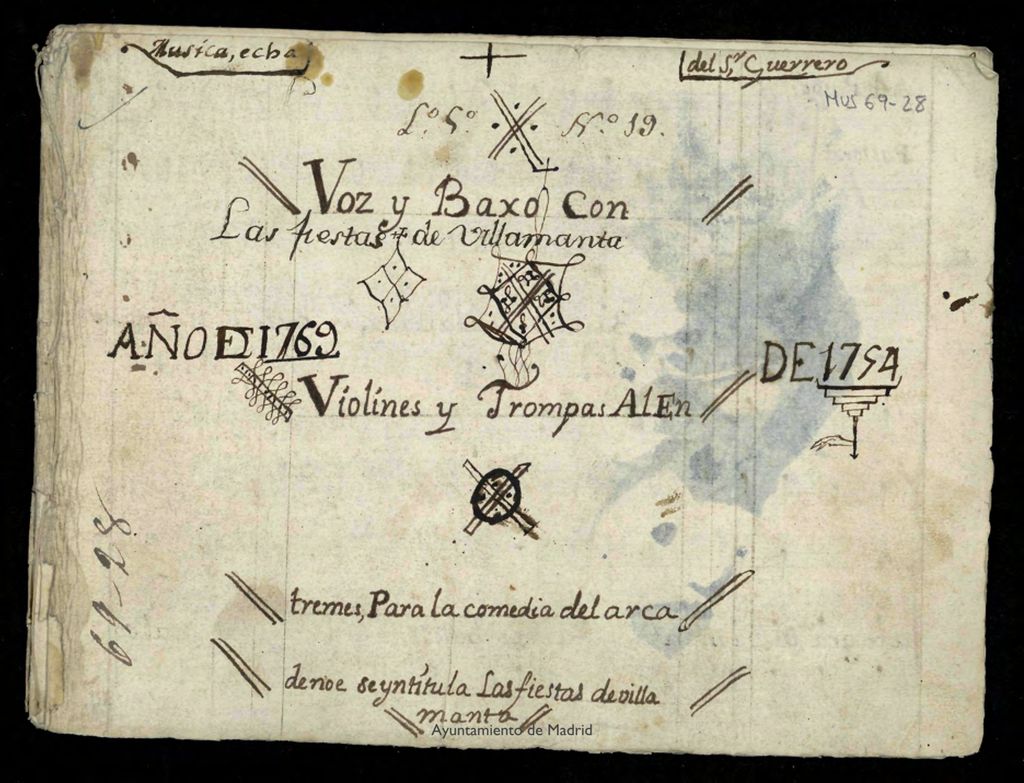 Musica, echa
del S.r Guerrero
Mus 69-28
L.o 5.o N.o 19.
Voz y Baxo Con
Las fiestas de Villamanta
AÑO DE 1769
DE 1754
Violines y Trompas Al En
tremes, Para la comedia del arca
69-28
denoe seyntitula Las fiestas de villa
manta
Ayuntamiento de Madrid